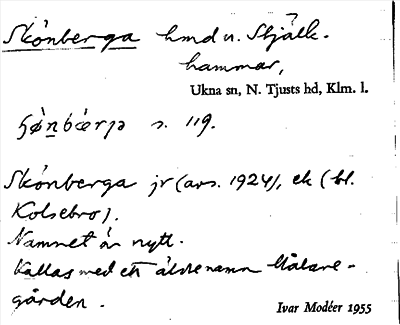 Skönberga hmd u. Stjälk-
hammar,
Ukna sn, N. Tjusts hd, Klm. l.
s. 119.
Skönberga jr (avs. 1924), ek (bl.
Kolsebro).
Namnet är nytt.
Kallas med ett äldre namn Målare-
gården.
Ivar Modéer 1955